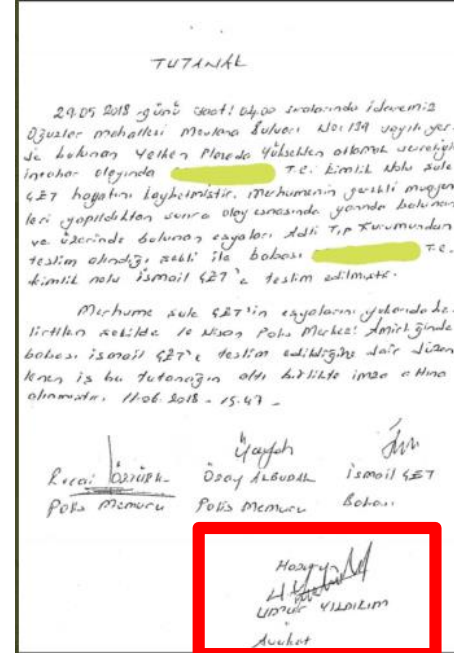 TUTANAK
29.05 2018 günü saat: 04.00 sıralarında idaremiz
Oğuzlar mahallesi Mevlana Bulvarı No: 139 sayılı yer-
de bulunan Yelken Plazada Yüksekten atlamak suretiyle
intihar olayında T.C. kimlik Nolu Şule
ÇET hayatını kaybetmiştir. Merhumenin gerekli
leri yapıldıktan sonra olay esnasında yanında bulunan
ve üzerinde bulunan eşyaları Adli Tıp Kurumundan
teslim alındığı şekli ile babası T.C.
kimlik nolu İsmail ÇET'e teslim edilmiştir.
Merhume Şule ÇET'in eşyalarını yukarıda be-
lirtilen şekilde 10 Nisan Polis Merkezi Amirliğinde
babası İsmail ÇET'e teslim edildiğine dair düzen
lenen iş bu tutanağın altı birlikte imza altına
alınmıştır. 11.06.2018 - 15.47 -
Özay İsmail ÇET
Polis Memuru Polis Memuru Babası
Umur YILDIRIM
Avukat